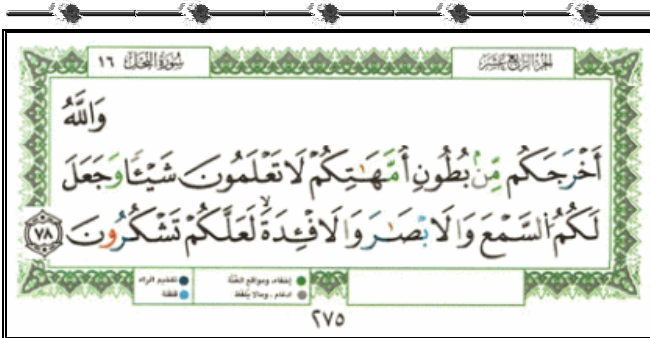 الجزء الرابع عشر
سورة النحل ١٦
وَاللَّهُ
أَخْرَجَكُم مِّنۢ بُطُونِ أُمَّهَٰتِكُمْ لَا تَعْلَمُونَ شَيْـًٔا وَجَعَلَ
لَكُمُ السَّمْعَ وَالْأَبْصَٰرَ وَالْأَفْـِٔدَةَ ۙ لَعَلَّكُمْ تَشْكُرُونَ ٧٨
إخفاء، ومواقع الغنة
تفخيم الراء
ادغام، ومالا يلفظ
قلقلة
٢٧٥